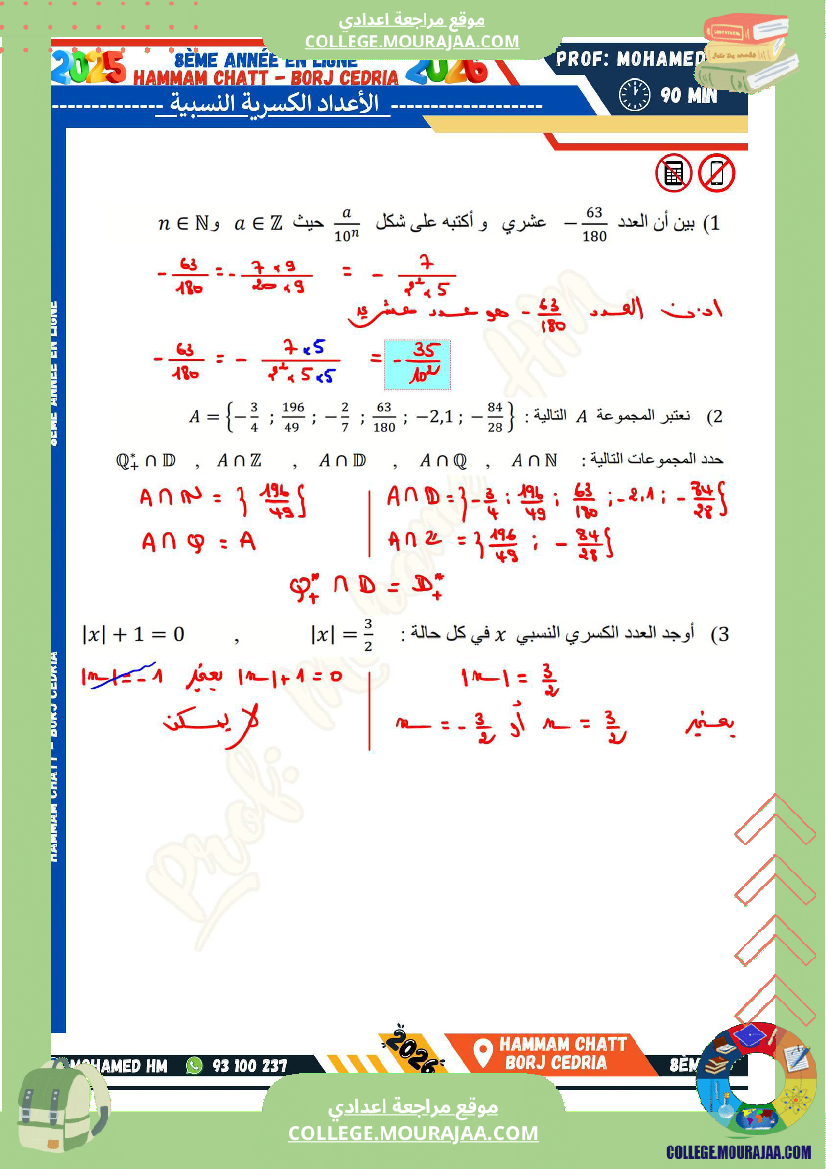 موقع مراجعة اعدادي
COLLEGE.MOURAJAA.COM
2025 8ÈME ANNÉE EN LIGNE 2026 PROF: MOHAMED
HAMMAM CHATT - BORJ CEDRIA
90 MIN
الأعداد الكسرية النسبية
1) بين أن العدد -63/180 عشري و أكتبه على شكل a/10^n حيث a ∈ ℤ و n ∈ ℕ
-63/180 = -(7×9)/(20×9) = -7/(2²×5)
اذن العدد -63/180 هو عدد عشري
-63/180 = -(7×5)/(2²×5×5) = -35/10²
2) نعتبر المجموعة A التالية : A = {-3/4 ; 196/49 ; -2/7 ; 63/180 ; -2,1 ; -84/28}
حدد المجموعات التالية : A ∩ ℕ , A ∩ ℚ , A ∩ 𝔻 , A ∩ ℤ , ℚ*₊ ∩ 𝔻
A∩ℕ = {196/49}
A∩ℚ = A
A∩𝔻 = {-3/4 ; 196/49 ; 63/180 ; -2,1 ; -84/28}
A∩ℤ = {196/49 ; -84/28}
ℚ*₊ ∩ 𝔻 = 𝔻*₊
3) أوجد العدد الكسري النسبي x في كل حالة : |x| = 3/2 , |x| + 1 = 0
|x| = 3/2
يعني x = 3/2 أو x = -3/2
|x|+1 = 0 يعني |x| = -1
لا يمكن
8ÈME ANNÉE EN LIGNE
HAMMAM CHATT - BORJ CEDRIA
Prof: M
HM
MOHAMED HM 93 100 237
2026
HAMMAM CHATT
BORJ CEDRIA
8ÈM
موقع مراجعة اعدادي
COLLEGE.MOURAJAA.COM
COLLEGE.MOURAJAA.COM